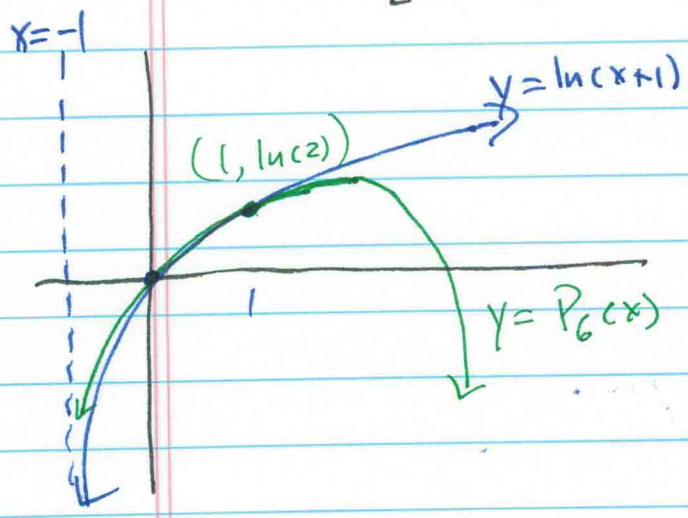 x=-1
y = ln(x+1)
(1, ln(2))
1
y = P₆(x)